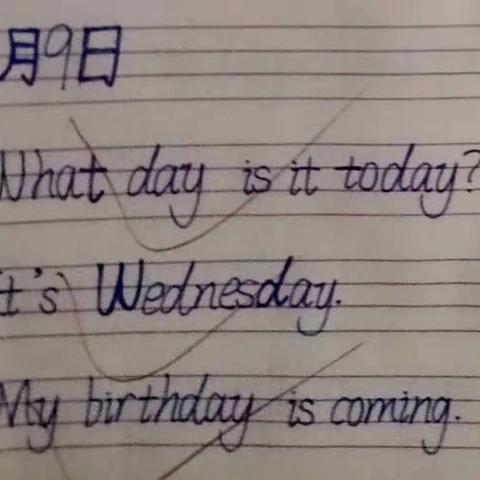 月9日
What day is it today?
It's Wednesday.
My birthday is coming.